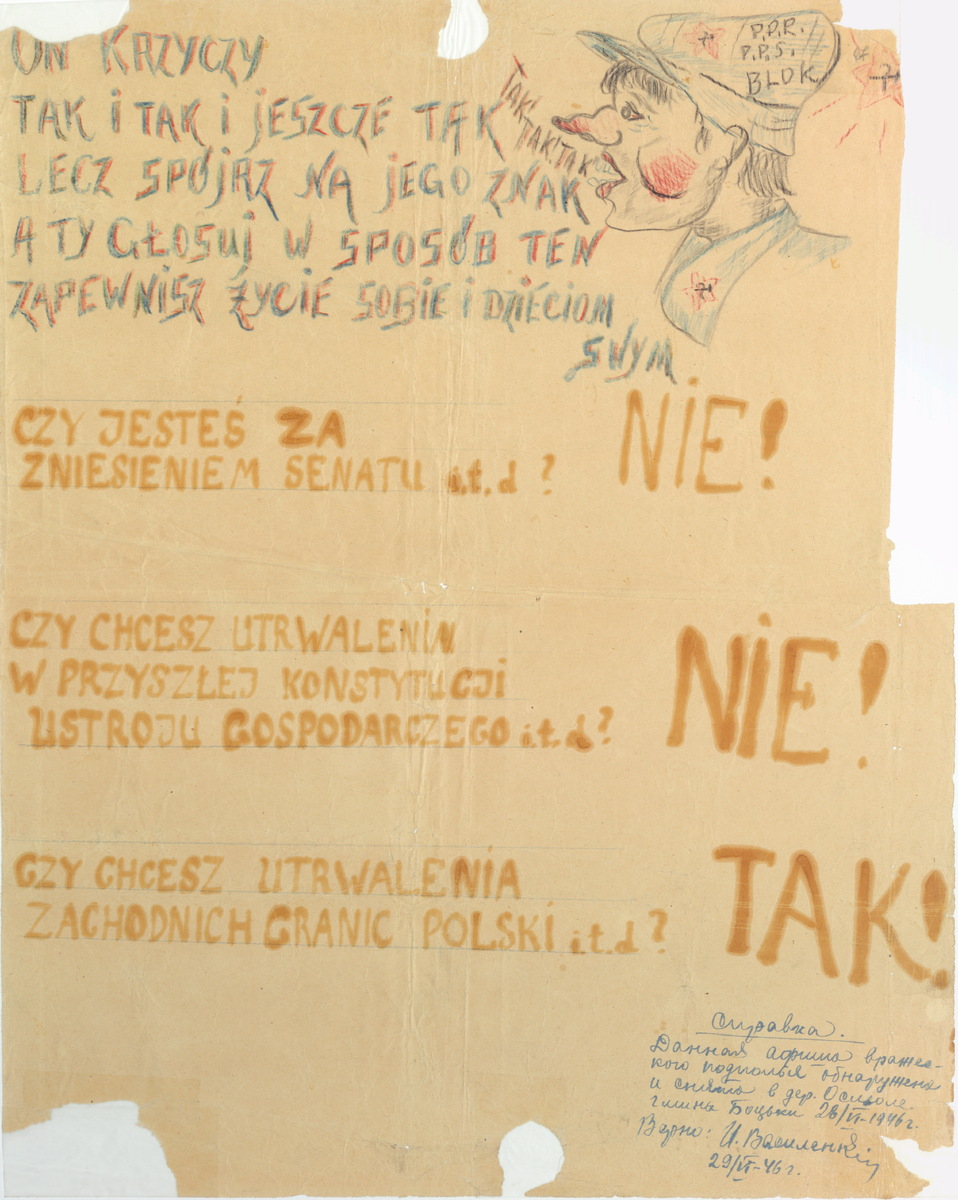 ON KRZYCZY
TAK i TAK i JESZCZE TAK
LECZ SPÓJRZ NA JEGO ZNAK
A TY GŁOSUJ W SPOSÓB TEN
ZAPEWNISZ ŻYCIE SOBIE i DZIECIOM
SWYM
TAK!
TAK! TAK
P.P.R.
P.P.S.
BLOK
CZY JESTEŚ ZA
ZNIESIENIEM SENATU i.t.d ?
NIE!
CZY CHCESZ UTRWALENIA
W PRZYSZŁEJ KONSTYTUCJI
USTROJU GOSPODARCZEGO i.t.d?
NIE!
CZY CHCESZ UTRWALENIA
ZACHODNICH GRANIC POLSKI i.t.d ?
TAK!
Справка.
Данная афиша вражес-
кого подполья обнаружена
и снята в дер.
гмины Боцьки 28/VI-1946г.
Верно: И. Василенко
29/VI-46г.